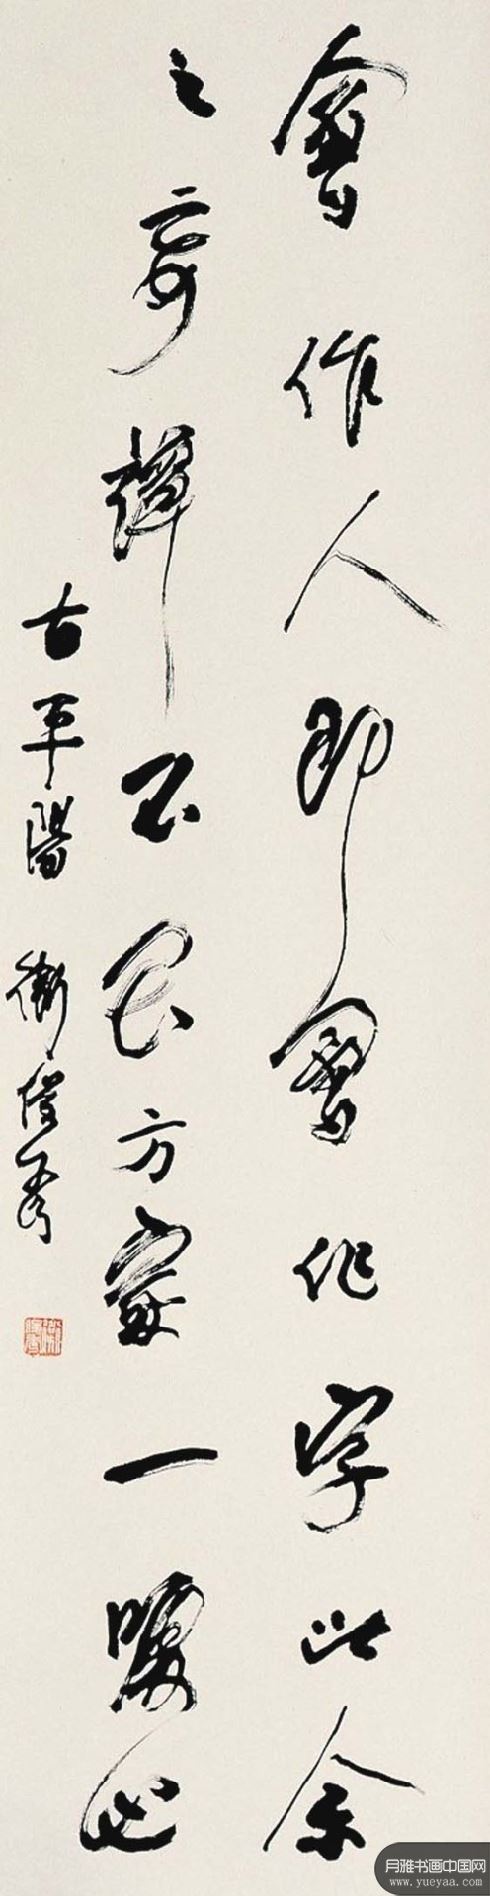 會作人即會作字此余
之妄譚不足方家一噱也
古平陽 衛俊秀
月雅书画中国网
www.yueyaa.com